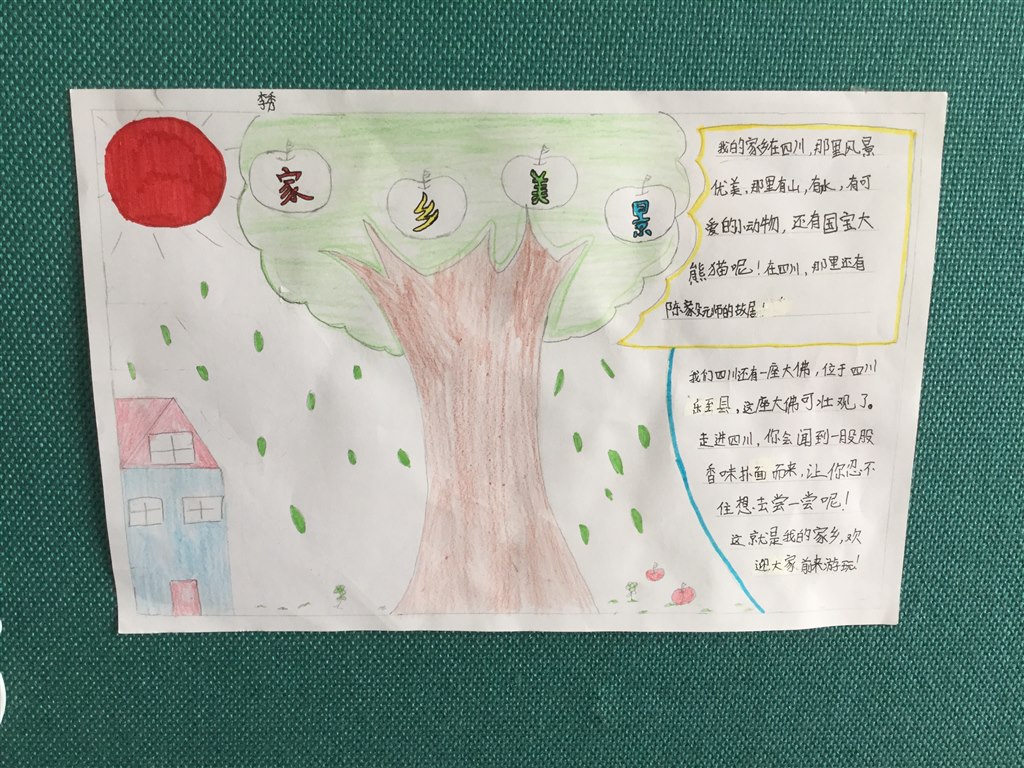 李秀
家乡美景
我的家乡在四川，那里风景
优美，那里有山，有水，有可
爱的小动物，还有国宝大
熊猫呢！在四川，那里还有
陈家元帅的故居！
我们四川还有一座大佛，位于四川
乐至县，这座大佛可壮观了。
走进四川，你会闻到一股股
香味扑面而来，让你忍不
住想去尝一尝呢！
这就是我的家乡，欢
迎大家前来游玩！